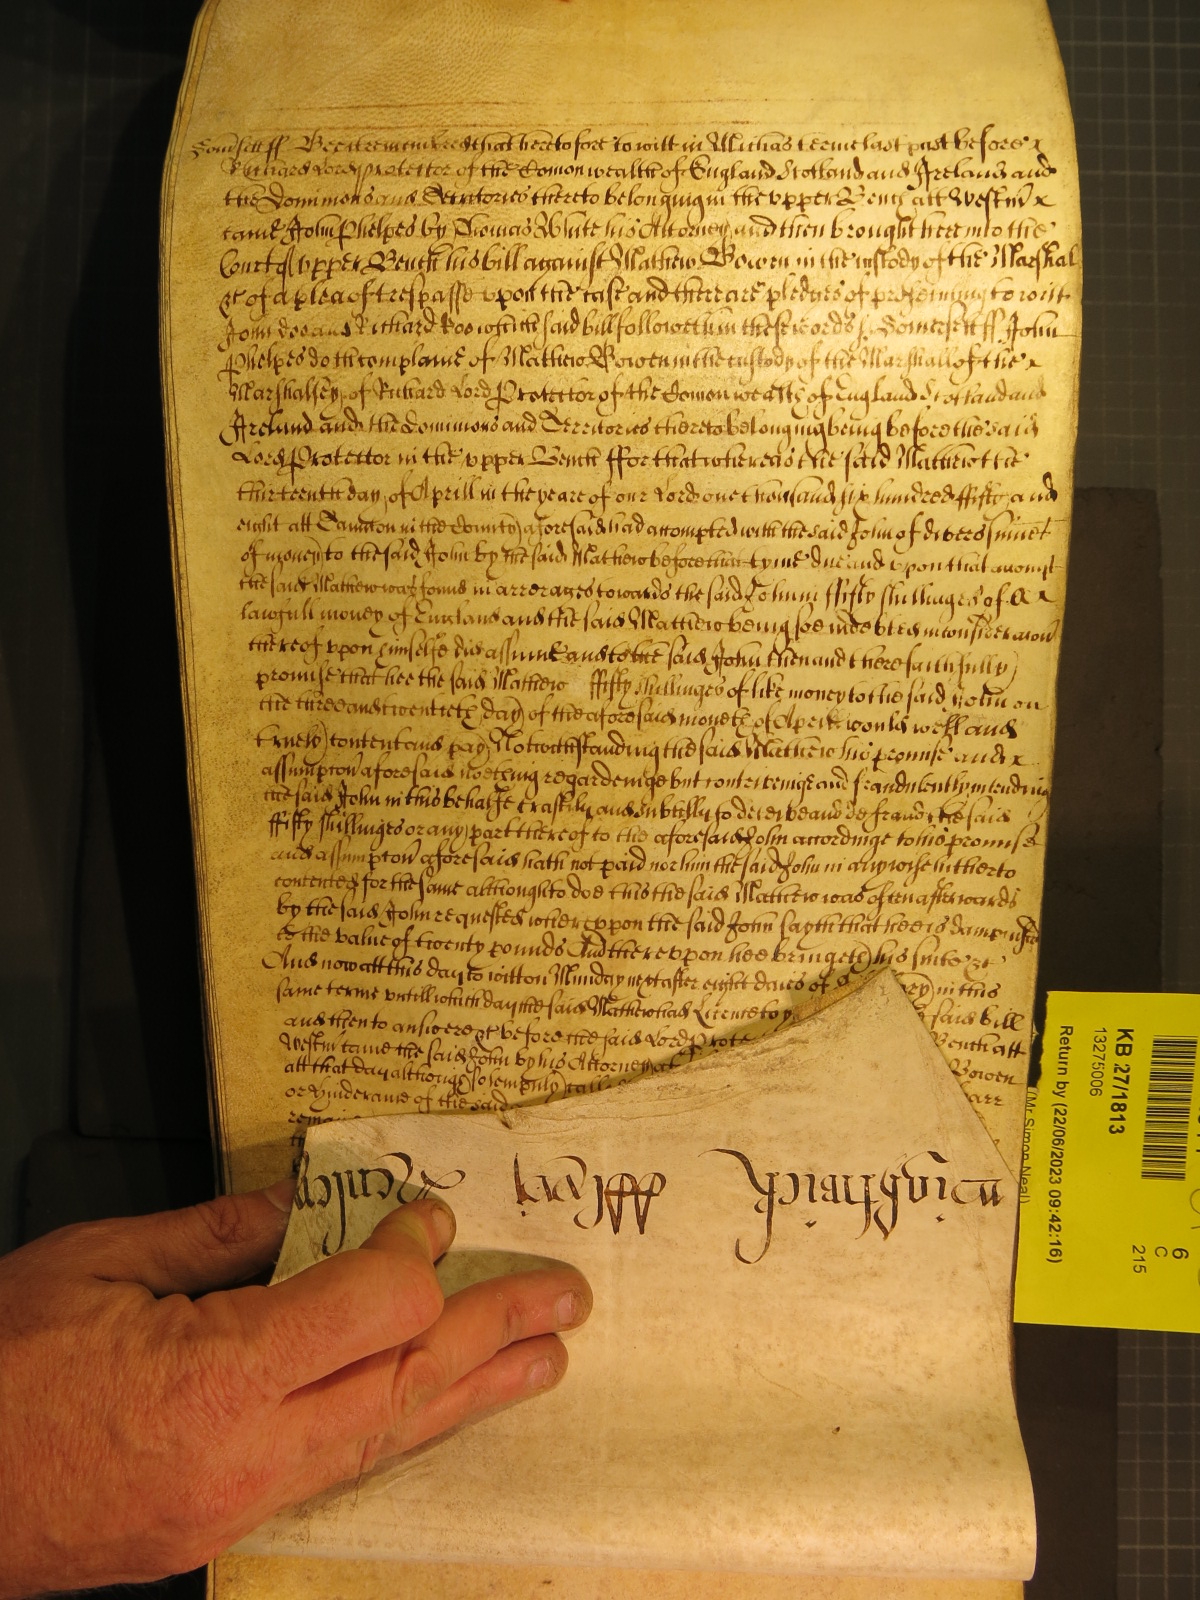 Somsett ss Be it remembred that heretofore to witt in Michas terme last past before
Richard Lord Protector of the Comonwealth of England Scotland and Ireland and
the Dominions and Territories thereto belonging in the upper Bench att Westm
came John Phelpes by Thomas White his Attorney and then brought here into the
Court of upper Bench his bill against Mathew Bowen in the custody of the Marshal
&c of a plea of trespasse upon the case and there are pledges of prosecuting to witt
John doo and Richard Roo which said bill followeth in these words s. Somersett ss John
Phelpes doth complaine of Mathew Bowen in the custody of the Marshall of the
Marshalsey of Richard Lord Protector of the Comonwealth of England Scotland and
Ireland and the Dominions and Territories thereto belonging being before the said
Lord Protector in the upper Bench ffor that whereas the said Mathew the
thirteenth day of Aprill in the yeare of our Lord one thousand six hundred ffifty and
eight att Taunton in the County aforesaid had accompted with the said John of divers summes
of money to the said John by the said Mathew before that tyme due and upon that accompt
the said Mathew was found in arrerages towards the said John in ffifty shillinges of
lawfull money of England and the said Mathew being soe indebted in consideracon
thereof upon himselfe did assume and to the said John then and there faithfully
promise that hee the said Mathew ffifty shillinges of like money to the said John on
the three and twentieth day of the aforesaid moneth of Aprill would well and
truely content and pay Notwithstanding the said Mathew his promise and
assumpcon aforesaid nothing regardeinge but contriveinge and fraudulently intending
the said John in this behalfe craftily and subtilly to deceive and defraud the said
ffifty shillinges or any part thereof to the aforesaid John accordinge to his promise
and assumpcon aforesaid hath not paid nor him the said John in any wise hitherto
contented for the same although to doe this the said Mathew was often afterwards
by the said John requested whereupon the said John sayth that hee is damnified
to the value of twenty pounds And thereupon hee bringeth his suite &c
And now att this day to witt on Munday next after eight daies of in this
same terme untill which day the said Mathew had Licence to said bill
and then to answere &c before the said Lord Prote Bench att
Westm came the said John by his Attorney Bowen
att that day although solempnly
or hinderance of the said
Wingfeild
Henley
KB 27/1813
13275006
Return by (22/06/2023 09:42:16)
(Mr Simon Neal)
6
C
215